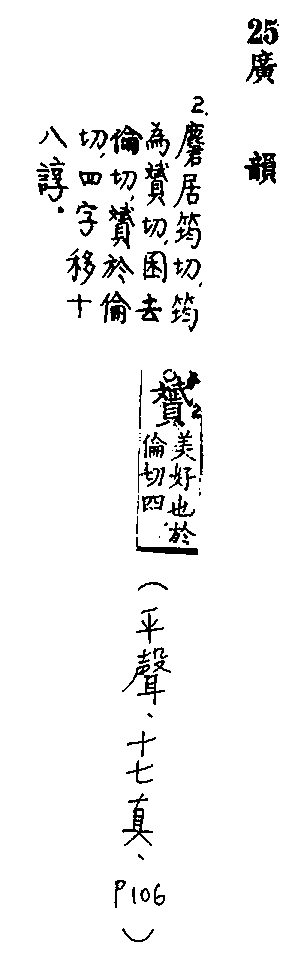 25廣韻
2.麏居筠切,筠
為贇切,囷去
倫切,贇於倫
切,四字移十
八諄。
贇2
美好也於
倫切四
(平聲、十七真、P106)